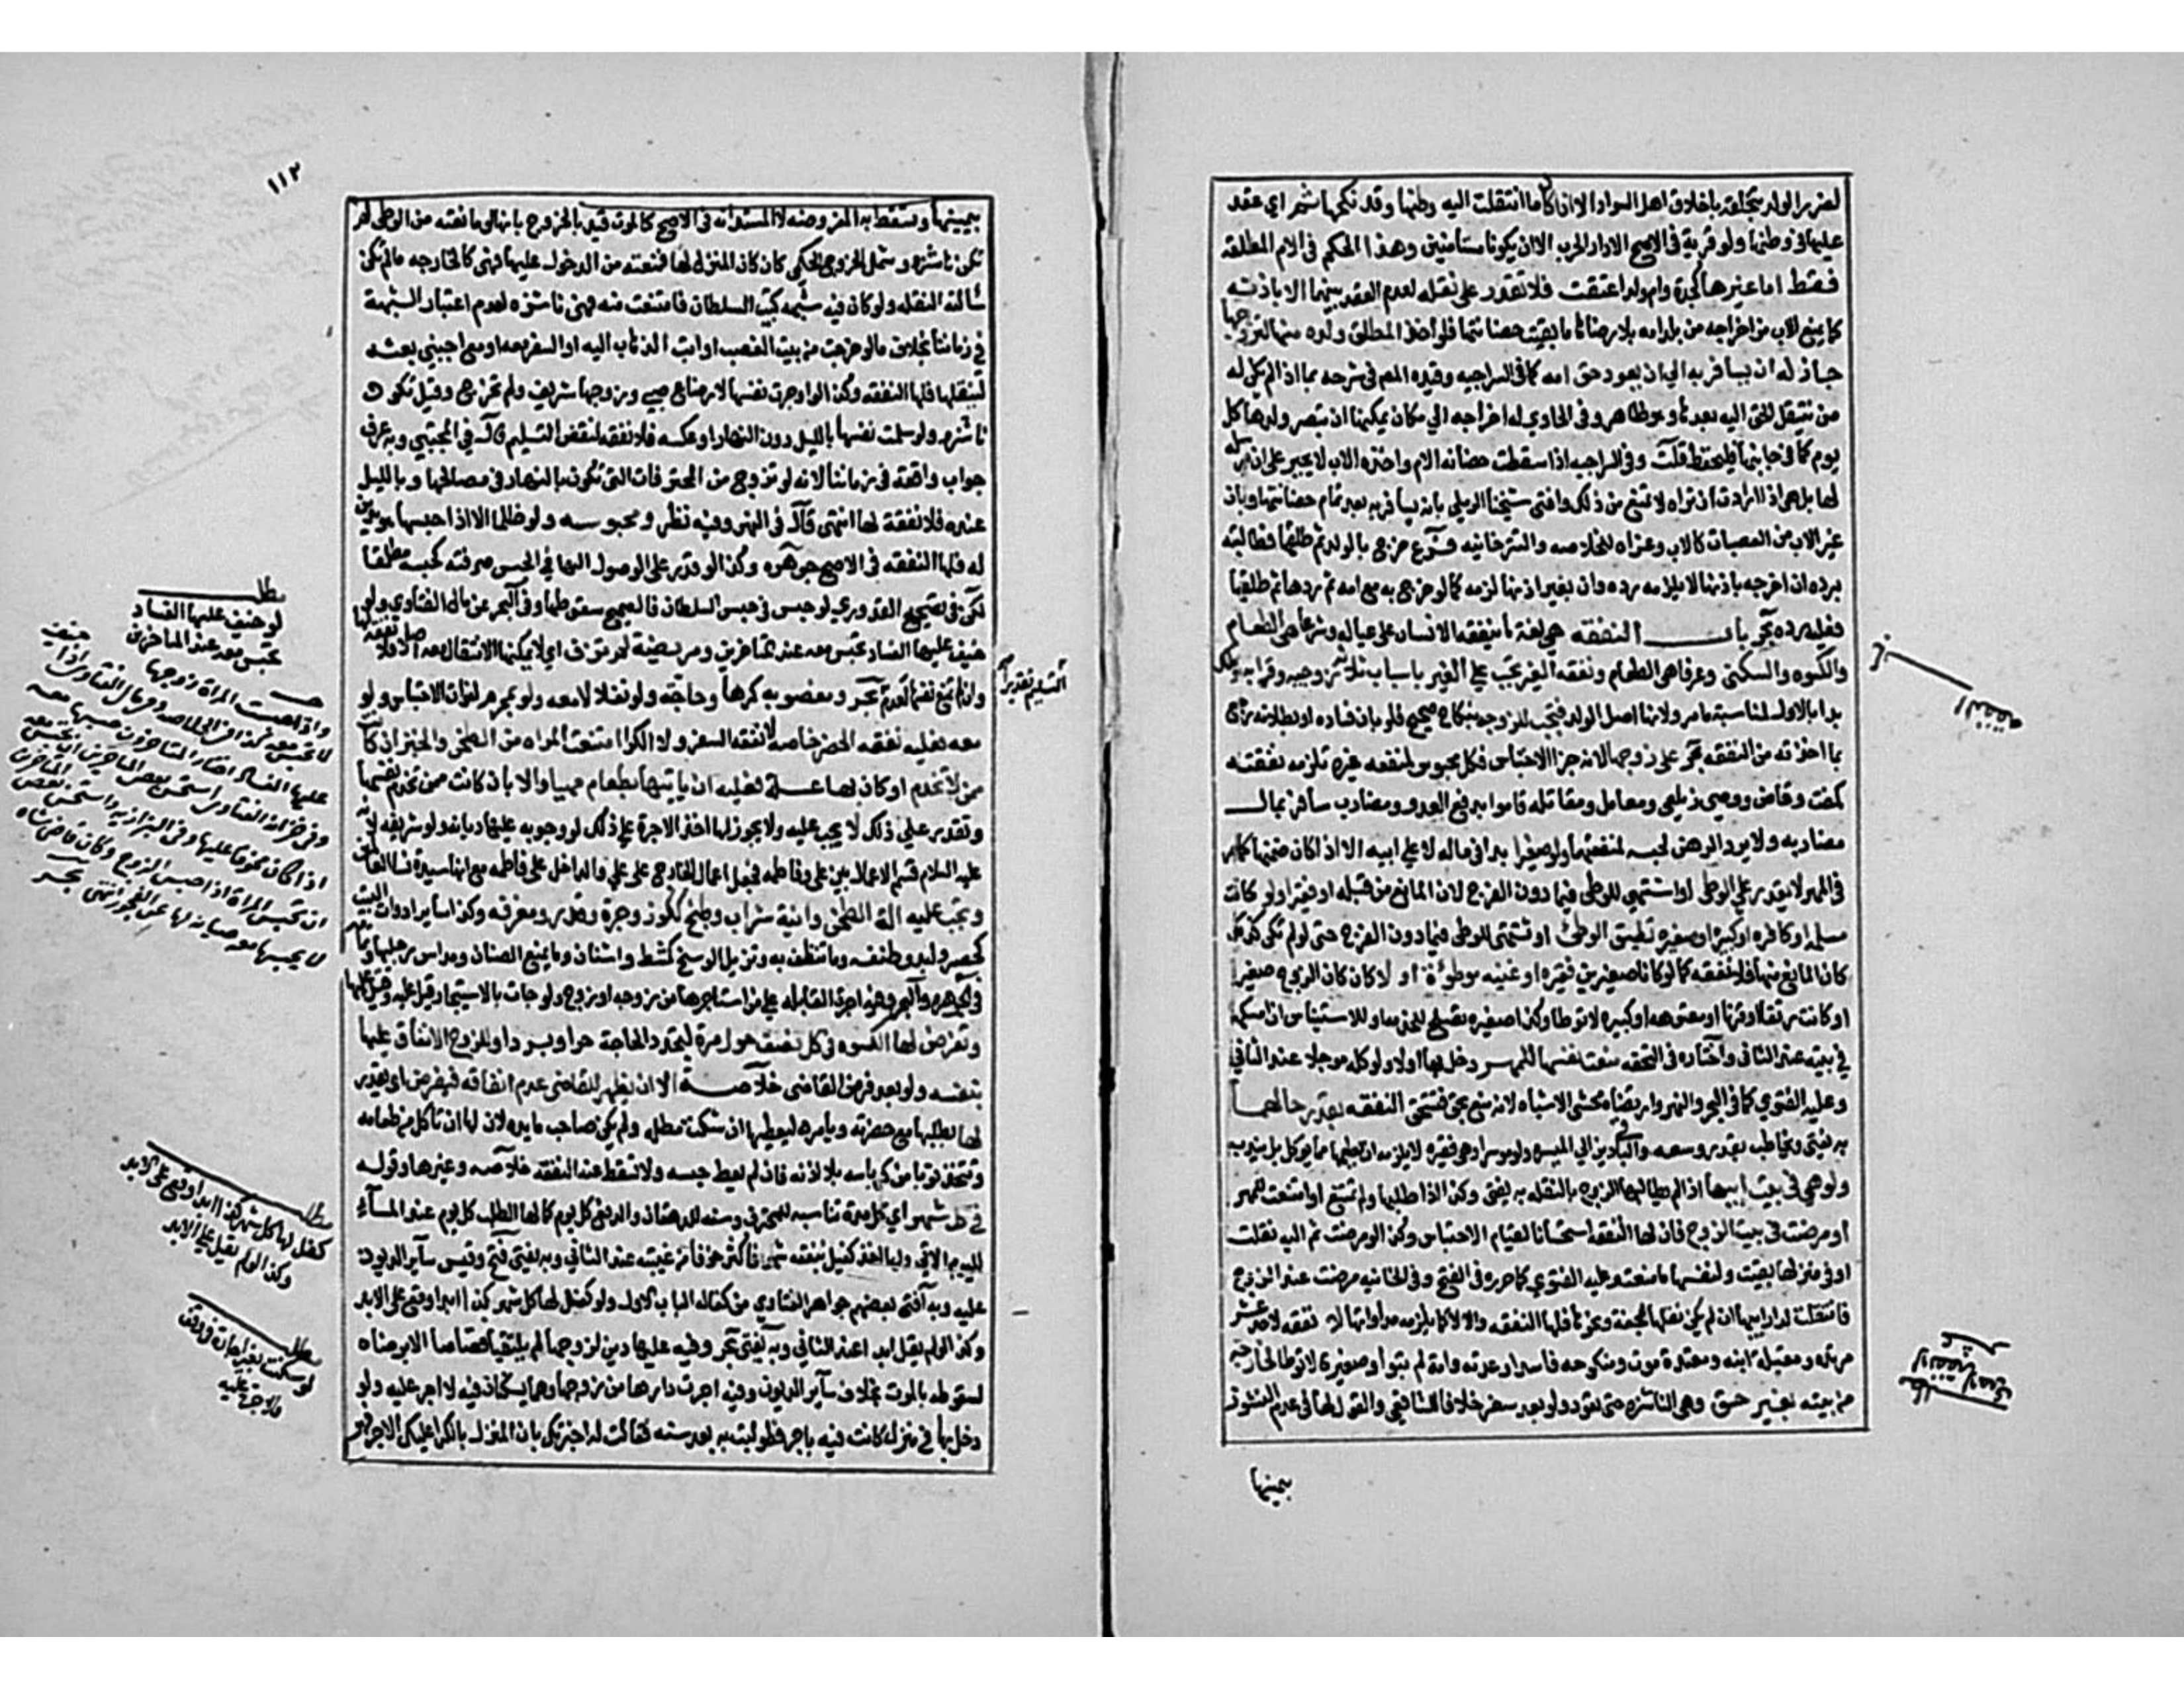 لضرر الولد بتخلقه باخلاق اهل السواد الا اذا كان ما انتقلت اليه وطنها وقد نكحها ثمر اي عقد
عليها في وطنها ولو قرية في الاصح الا دار الحرب الا ان يكونا مستامنين وهذا الحكم في الام المطلقه
فقط اما غيرها كجدة وام ولد اعتقت فلا تقدر على نقله لعدم العقد بينهما الا باذنه
كما يمنع الاب من اخراجه من بلد امه بلا رضاها ما بقيت حضانتها فلو اخذ المطلق ولده منها لتزوجها
جاز له ان يسافر به الي ان يعود حق امه كما في السراجيه وقيده المص في شرحه بما اذا لم يكن له
من تنتقل الحق اليه بعدها وهو ظاهر وفي الحاوي له اخراجه الي مكان يمكنها ان تبصر ولدها كل
يوم كما في جانبها فليحفظ قلت وفي السراجيه اذا سقطت حضانه الام واخذه الاب لا يجبر على ان يرسله
لها بل هي اذا ارادت ان تراه لا تمنع من ذلك وافتى شيخنا الرملي بانه يسافر به بعد تمام حضانتها وبان
غير الاب من العصبات كالاب وعزاه للخلاصه والتترخانيه فروع خرج بالولد ثم طلقها فطالبته
برده ان اخرجه باذنها لا يلزمه رده وان بغير اذنها لزمه كما لو خرج به مع امه ثم ردها ثم طلقها
فعليه رده بحر باب النفقه هي لغة ما ينفقه الانسان على عياله وشرعا هي الطعام
والكسوه والسكنى وعرفا هي الطعام ونفقه الغير تجب علي الغير باسباب ثلاثة زوجيه وقرابه وملك
بدا بالاول لمناسبة ما مر ولانها اصل الولد فتجب للزوجه بنكاح صحيح فلو بان فساده او بطلانه رجع
بما اخذته من النفقه بحر على زوجها لانها جزا الاحتباس فكل محبوس لمنفعه غيره تلزمه نفقته
كمفت وقاض ووصي زيلعي وعامل ومقاتله قاموا بدفع العدو ومضارب سافر بمال
مضاربه ولا يرد الرهن لحبسه لمنفعتهما ولو صغيرا جدا في ماله لا علي ابيه الا اذا كان ضمنها كما مر
في المهر لا يقدر علي الوطى او لو فقيرا ولو كانت
مسلمه او كافره او كبيرة او صغيره تطيق الوطئ او تشتهى للوطى فيما دون الفرج حتى لو لم تكن كذلك
كان المانع منها فلا نفقه كما لو كانا صغيرين فقيره او غنيه موطؤة او لا كان كان الزوج صغيرا
او كانت رتقا او قرنا او معتوهه او كبيره لا توطا وكذا صغيره تصلح للخدمه او للاستيناس ان امسكها
في بيته عند الثاني واختاره في التحفه منعت نفسها للمهر دخل بها او لا ولو كله موجلا عند الثاني
وعليه الفتوي كما في البحر والنهر وارتضاه محشي الاشباه لانه منع بحق فتستحق النفقه بقدر حالهما
به يفتي ويخاطب بقدر وسعه والباقي دين الي الميسره ولو موسرا وهي فقيره لا يلزمه ان يطعمها مما ياكل بل يندب
ولو هي في بيت ابيها اذا لم يطالبها الزوج بالنقله به يفتى وكذا اذا طلبها ولم تمتنع او امتنعت للمهر
او مرضت في بيت الزوج فان لها النفقه استحسانا لقيام الاحتباس وكذا لو مرضت ثم اليه نقلت
او في منزلها بقيت ولنفسها ما منعت وعليه الفتوي كما حرره في الفتح وفي الخانيه مرضت عند الزوج
فانتقلت لدار ابيها ان لم يكن نقلها بمحفة ونحوها فلها النفقه والا لا كما لا يلزمه مداواتها لا نفقه لاحد عشر
مرتده ومقبله ابنه ومعتدة موت ومنكوحه فاسدا وعدته وامة لم تبوا وصغيرة لا توطا وخارجة
من بيته بغير حق وهي الناشزه حتى تعود ولو بعد سفره خلافا للشافعي والقول لها في عدم النشوز
بيمينها
النفقه
لا نفقه لاحد عشر
١١٢
بيمينها وتسقط به المفروضه لا المستدانه في الاصح كالموت قيد بالخروج بانها لو مانعته من الوطى لم
تكن ناشزه وشمل الخروج الحكمي كان كان المنزل لها فمنعته من الدخول عليها فهي كالخارجه ما لم تكن
سالته النقله ولو كان فيه شبهه كبيت السلطان فامتنعت منه فهي ناشزه لعدم اعتبار الشبهة
في زماننا بخلاف ما لو خرجت من بيت الغصب او ابت الذهاب اليه او السفر معه او مع اجنبي بعثه
لينقلها فلها النفقه وكذا لو اجرت نفسها لارضاع صبي وزوجها شريف ولم تخرج وقيل تكون
ناشزه ولو سلمت نفسها بالليل دون النهار او عكسه فلا نفقه لنقص التسليم قال في المجتبي وبه عرف
جواب واقعة في زماننا لانه لو تزوج من المحترفات التي تكون بالنهار في مصالحها وبالليل
عنده فلا نفقة لها انتهى قال في النهر وفيه نظر ومحبوسه ولو ظلما الا اذا حبسها هو بدين
له فلها النفقه في الاصح جوهره وكذا لو قدر على الوصول اليها في الحبس صيرفيه كحبسه مطلقا
لكن في تصحيح القدوري لو حبس في حبس السلطان فالصحيح سقوطها وفي البحر عن مال الفتاوي ولو
خيف عليها الفساد تحبس معه عند المتاخرين ومريضة لم تزف اي لا يمكنها الانتقال معه اصلا فلا نفقة لها
وان لم تمنع نفسها لعدم التسليم تقديرا بحر ومغصوبه كرها وحاجه ولو نفلا لا معه ولو بمحرم لفوات الاحتباس ولو
معه فعليه نفقه الحضر خاصه لا نفقه السفر ولا الكرا امتنعت المراه من الطحن والخبز ان كانت
ممن لا تخدم او كان بها علة فعليه ان ياتيها بطعام مهيا والا بان كانت ممن تخدم نفسها
وتقدر علي ذلك لا يجب عليه ولا يجوز لها اخذ الاجرة علي ذلك لوجوبه عليها ديانه ولو شريفه لانه
عليه السلام قسم الاعمال بين علي وفاطمه فجعل اعمال الخارج على علي والداخل على فاطمه مع انها سيدة نسا العالمين
ويجب عليه الة الطحن وانية شراب وطبخ ككوز وجرة وقدر ومغرفه وكذا ساير ادوات البيت
كحصير ولبد وطنفسه وما تنظف به وتزيل الوسخ كمشط واشنان وما يمنع الصنان ومداس رجلها وتمامه
في الجوهره والبحر وفيه اجرة القابله علي من استاجرها من زوجه او زوج ولو جات بلا استيجار قيل عليه وقيل عليها
وتفرض لها الكسوه في كل نصف حول مرة لتجدد الحاجة حرا وبردا وللزوج الانفاق عليها
بنفسه ولو بعد فرض القاضي خلاصة الا ان يظهر للقاضي عدم انفاقه فيفرض او يقدر
لها بطلبها مع حضرته ويامره ليعطيها ان شكت مطله ولم يكن صاحب مايده لان لها ان تاكل من طعامه
وتتخذ ثوبا من كرباسه بلا اذنه فان لم يعط حبسه ولا تسقط عنه النفقه خلاصه وغيرها وقوله
في كل شهر اي كل مدة تناسبه كيوم للمحترف وسنه للدهقان والدفع كل يوم كما لها الطلب كل يوم عند المساء
لليوم الاتي ولها اخذ كفيل بنفقه شهر فاكثر خوفا من غيبته عند الثاني وبه يفتي فتح وقيس ساير الديون
عليه وبه افتى بعضهم جواهر الفتاوي من كفاله الباب الاول ولو كفل لها كل شهر كذا ابدا وقع على الابد
وكذا لو لم يقل ابدا عند الثاني وبه يفتي بحر وفيه عليها دين لزوجها لم يلتقيا قصاصا الا برضاه
لسقوطه بالموت بخلاف ساير الديون وفيه اجرت دارها من زوجها وهما يسكنان فيه لا اجر عليه ولو
دخل بها في منزل كانت فيه باجر فطولبت به بعد سنه فقالت له اخبرتك بان المنزل بالكرا عليك الاجر فهو
التسليم تقديرا
مطلب
لو خيف عليها الفساد
تحبس معه عند المتاخرين
واذا حبست المراة زوجها
لا تحبس معه كذا في الخلاصه وفي مال الفتاوى اذا خيف
عليها الفساد اختار المتاخرون حبسها معه
وفي خزانة الفتاوى استحسن بعض المتاخرين ان تحبس معه
اذا كان مخوفا عليها وفي البزازيه استحسن بعض المتاخرين
ان تحبس المراة اذا حبس الزوج وكان قاضي شاه
يحبسها معه صيانه لها عن الفجور انتهى بحر
مطلب
كفل لها كل شهر كذا ابدا وقع على الابد
وكذا لو لم يقل علي الابد
مطلب